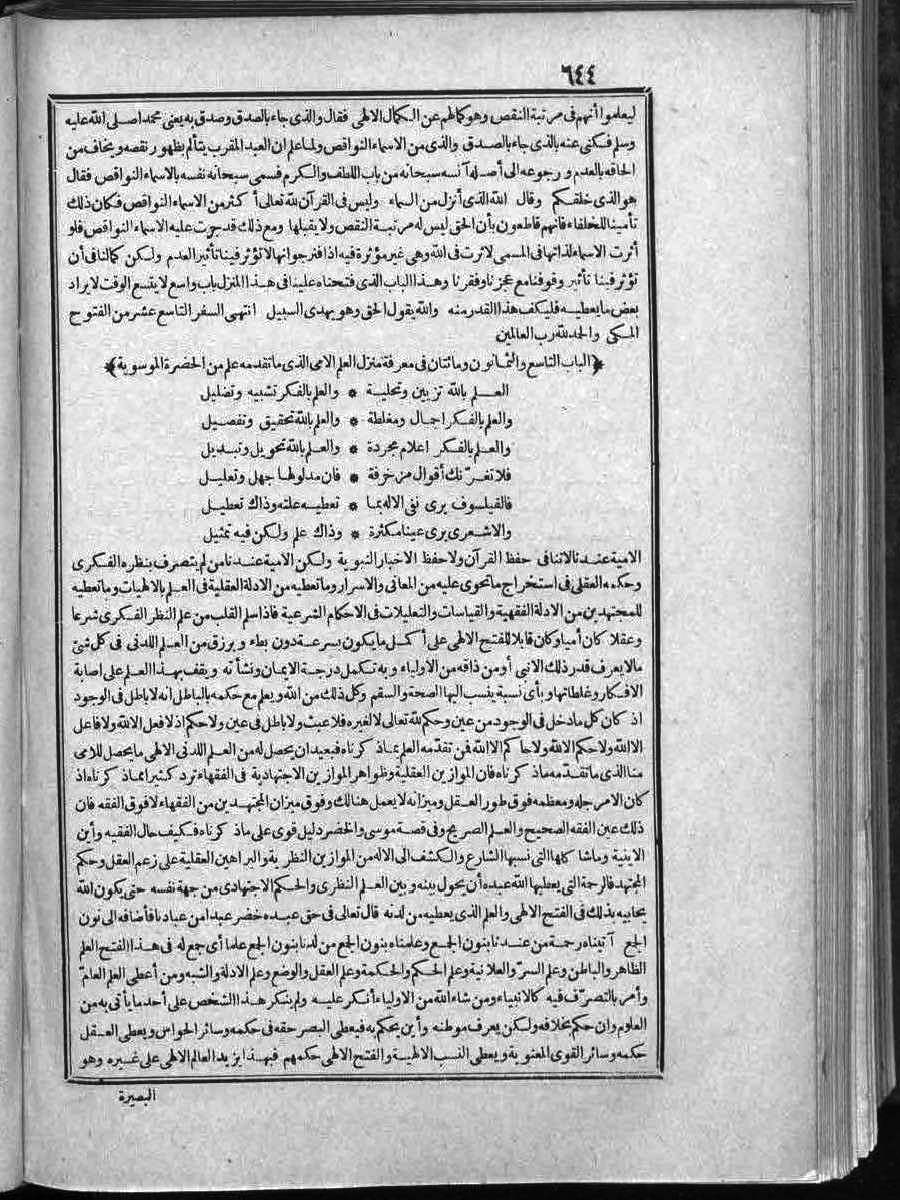 ٦٤٤
ليعلموا أنهم فى مرتبة النقص وهو كمالهم عن الكمال الالهى فقال والذى جاء بالصدق وصدق به يعنى محمدا صلى الله عليه
وسلم فكنى عنه بالذى جاء بالصدق والذى من الاسماء النواقص ولما علم ان العبد المقرب يتألم بظهور نقصه ويخاف من
الحاقه بالعدم ورجوعه الى أصله آنسه سبحانه من باب اللطف والكرم فسمى سبحانه نفسه بالاسماء النواقص فقال
هو الذى خلقكم وقال الله الذى أنزل من السماء وليس فى القرآن لله تعالى أكثر من الاسماء النواقص فكان ذلك
تأمينا للخلفاء فانهم قاطعون بأن الحق ليس له مرتبة النقص ولا يقبلها ومع ذلك قد جرت عليه الاسماء النواقص فلو
أثرت الاسماء لذاتها فى المسمى لاثرت فى الله وهى غير مؤثرة فيه اذا فنرجو انها لا تؤثر فينا تأثير العدم ولكن كمالنا فى أن
تؤثر فينا تأثير وقوفنا مع عجزنا وفقرنا وهذا الباب الذى فتحناه علينا فى هذا المنزل باب واسع لا يتسع الوقت لايراد
بعض ما يعطيه فليكف هذا القدر منه والله يقول الحق وهو يهدى السبيل انتهى السفر التاسع عشر من الفتوح
المكى والحمد لله رب العالمين
﴿الباب التاسع والثمانون ومائتان فى معرفة منزل العلم الامى الذى ما تقدمه علم من الحضرة الموسوية﴾
العلم بالله تزيين وتحلية * والعلم بالفكر تشبيه وتضليل
والعلم بالفكر اجمال ومغلطة * والعلم بالله تحقيق وتفصيل
والعلم بالفكر اعلام مجردة * والعلم بالله تحويل وتبديل
فلا تغرّنك أقوال مزخرفة * فان مدلولها جهل وتعليل
فالفيلسوف يرى نفى الاله بما * تعطيه علته وذاك تعطيل
والاشعرى يرى عينا مكثرة * وذاك علم ولكن فيه تمثيل
الامية عندنا لا تنافى حفظ القرآن ولا حفظ الاخبار النبوية ولكن الامية عندنا من لم يتصرف بنظره الفكرى
وحكمه العقلى فى استخراج ما تحوى عليه من المعانى والاسرار وما تعطيه من الادلة العقلية فى العلم بالالهيات وما تعطيه
للمجتهدين من الادلة الفقهية والقياسات والتعليلات فى الاحكام الشرعية فاذا سلم القلب من علم النظر الفكرى شرعا
وعقلا كان أميا وكان قابلا للفتح الالهى على أكمل ما يكون بسرعة دون بطء ويرزق من العلم اللدنى فى كل شئ
ما لا يعرف قدر ذلك الا نبى أو من ذاقه من الاولياء وبه تكمل درجة الايمان ونشأته ويقف بهذا العلم على اصابة
الافكار وغلطاتها وبأى نسبة ينسب اليها الصحة والسقم وكل ذلك من الله ويعلم مع حكمه بالباطل انه لا باطل فى الوجود
اذ كان كل ما دخل فى الوجود من عين وحكم لله تعالى لا لغيره فلا عبث ولا باطل فى عين ولا حكم اذ لا فعل الا لله ولا فاعل
الا الله ولا حكم الا لله ولا حاكم الا الله فمن تقدّمه العلم بما ذكرناه فبعيد ان يحصل له من العلم اللدنى الالهى ما يحصل للامى
منا الذى ما تقدّمه ما ذكرناه فان الموازين العقلية وظواهر الموازين الاجتهادية فى الفقهاء ترد كثيرا مما ذكرناه اذ
كان الامر جله ومعظمه فوق طور العقل وميزانه لا يعمل هنالك وفوق ميزان المجتهدين من الفقهاء لا فوق الفقه فان
ذلك عين الفقه الصحيح والعلم الصريح وفى قصة موسى والخضر دليل قوى على ما ذكرناه فكيف حال الفقيه وأين
الاينية وما شاكلها التى نسبها الشارع والكشف الى الاله من الموازين النظرية والبراهين العقلية على زعم العقل وحكم
المجتهد فالرحمة التى يعطيها الله عبده أن يحول بينه وبين العلم النظرى والحكم الاجتهادى من جهة نفسه حتى يكون الله
يحابيه بذلك فى الفتح الالهى والعلم الذى يعطيه من لدنه قال تعالى فى حق عبده خضر عبدا من عبادنا فأضافه الى نون
الجمع آتيناه رحمة من عندنا بنون الجمع وعلمناه بنون الجمع من لدنا بنون الجمع علما أى جمع له فى هذا الفتح العلم
الظاهر والباطن وعلم السرّ والعلانية وعلم الحكم والحكمة وعلم العقل والوضع وعلم الادلة والشبه ومن أعطى العلم العامّ
وأمر بالتصرّف فيه كالانبياء ومن شاء الله من الاولياء أنكر عليه ولم ينكر هذا الشخص على أحد ما يأتى به من
العلوم وان حكم بخلافه ولكن يعرف موطنه وأين يحكم به فيعطى البصر حقه فى حكمه وسائر الحواس ويعطى العقل
حكمه وسائر القوى المعنوية ويعطى النسب الالهية والفتح الالهى حكمهم فبهذا يزيد العالم الالهى على غيره وهو
البصيرة